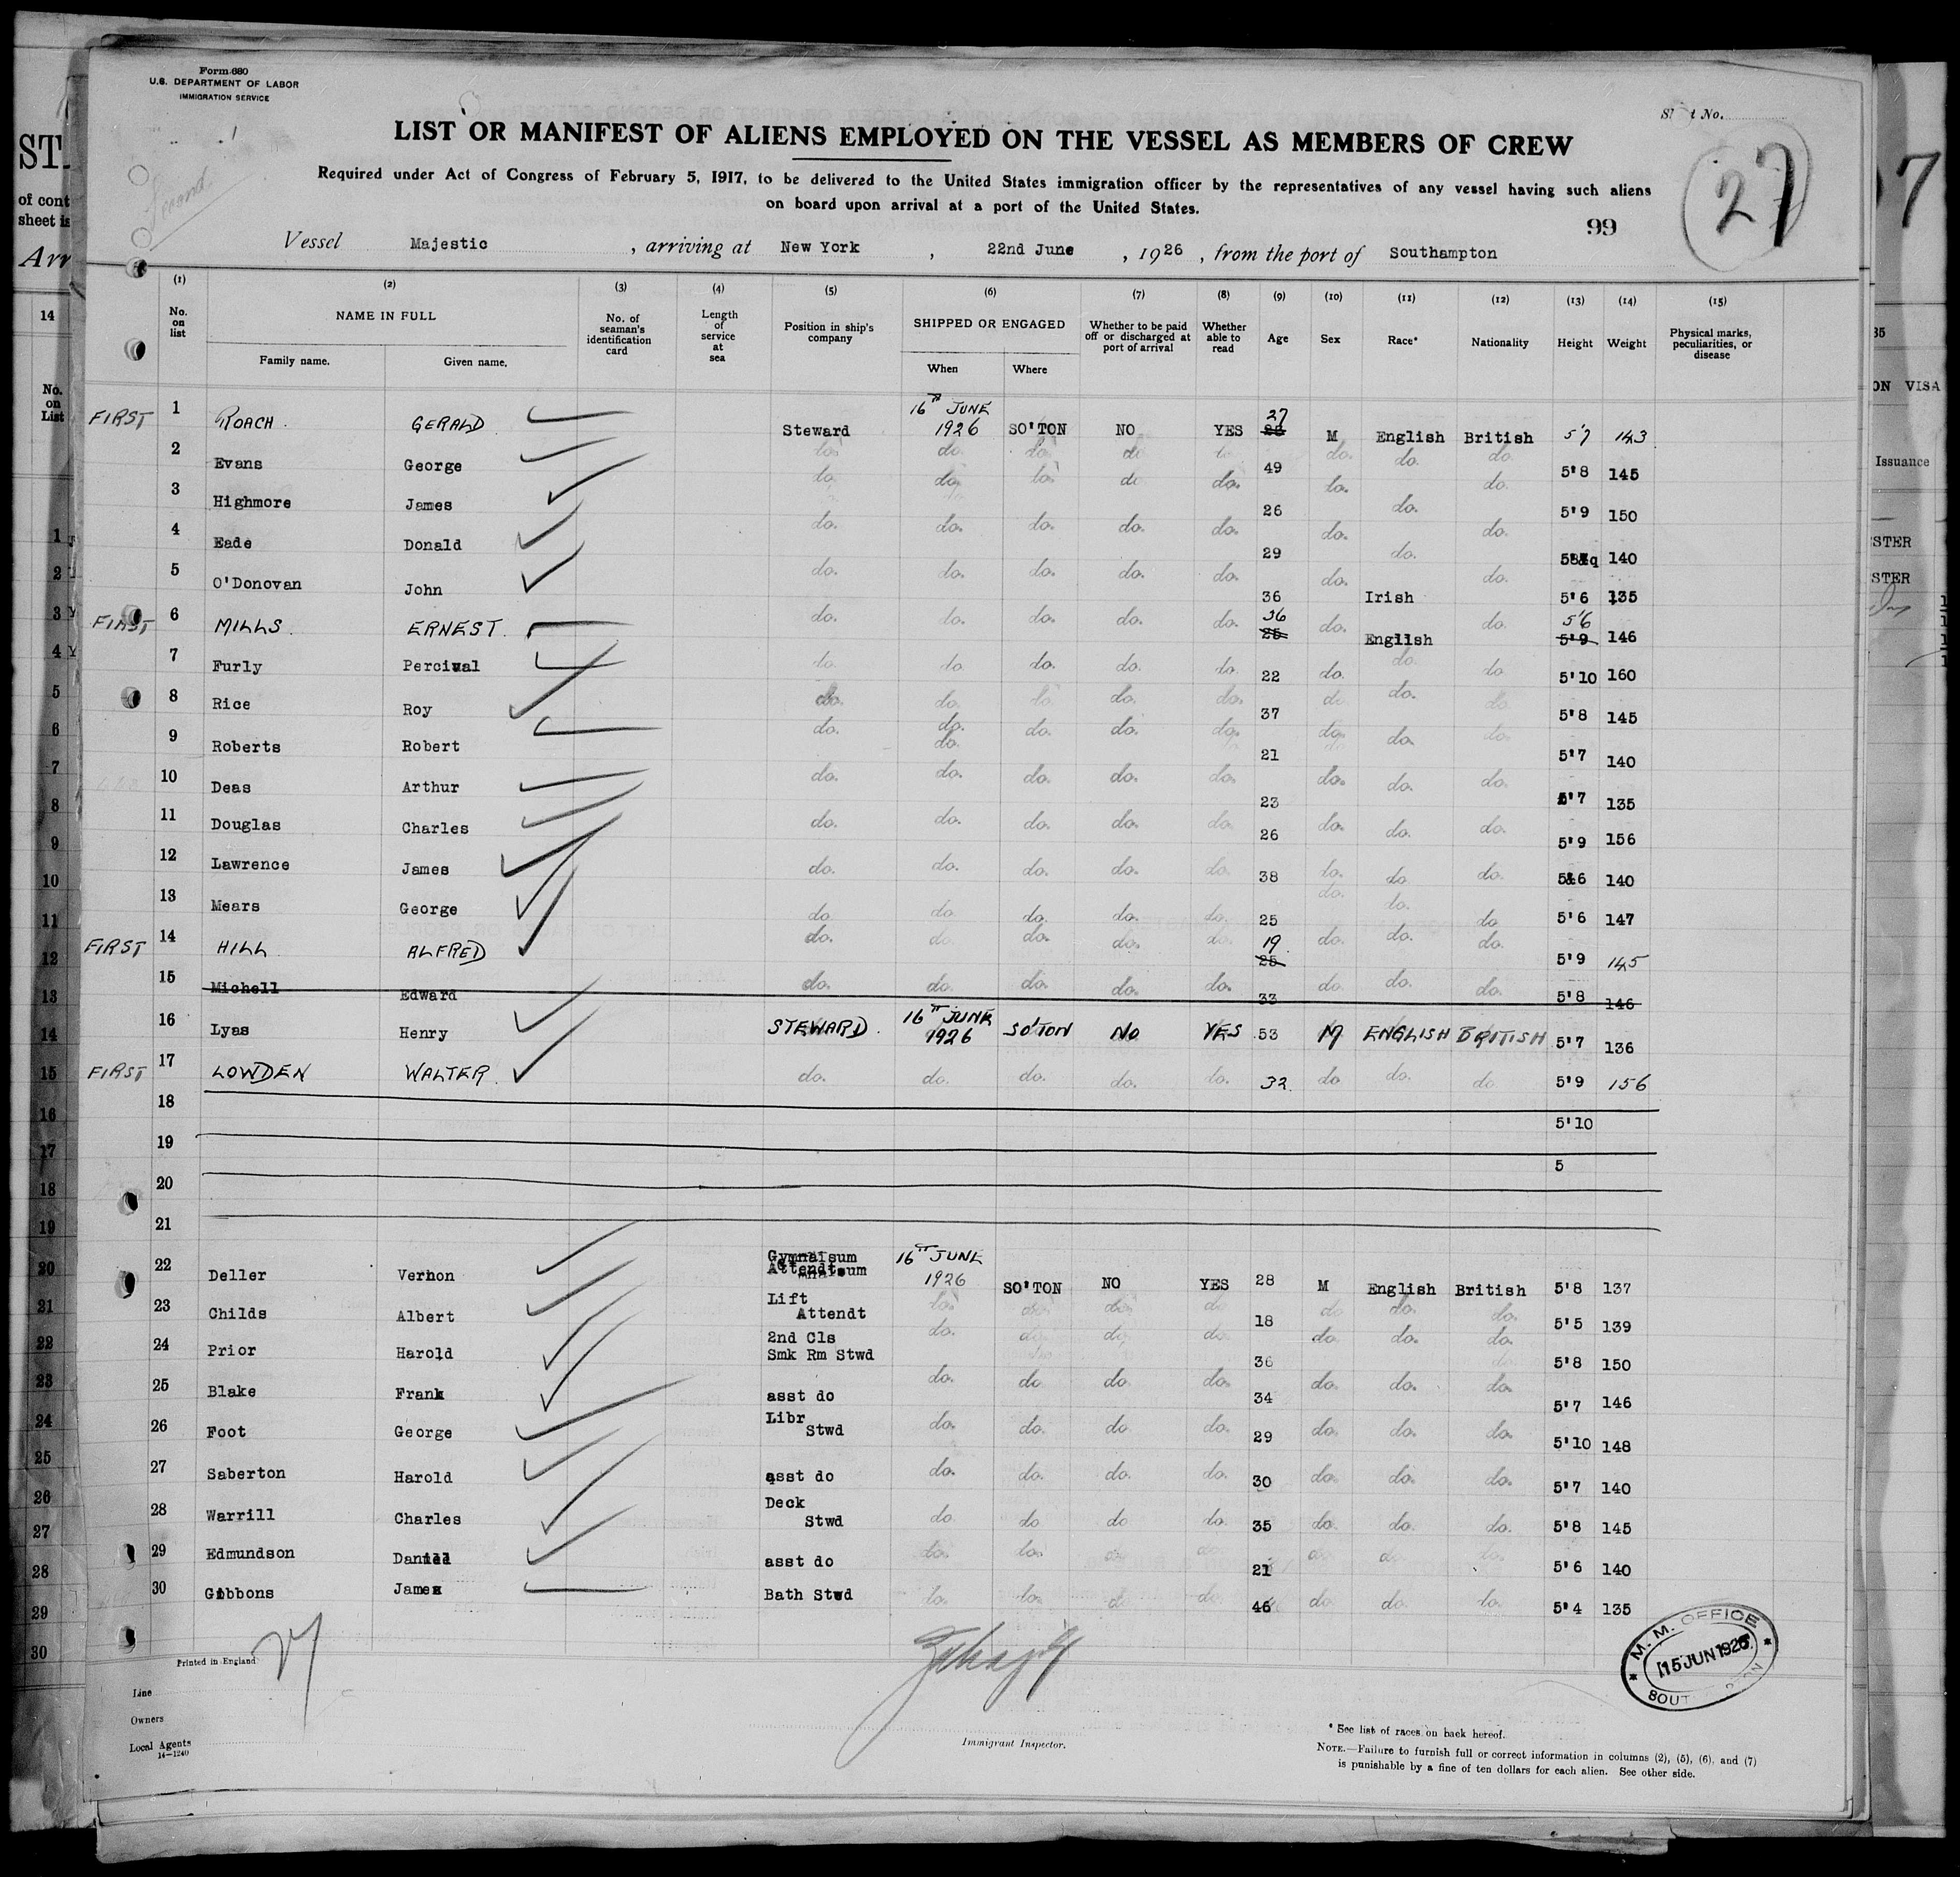 Form 680
U.S. DEPARTMENT OF LABOR
IMMIGRATION SERVICE
t No.
LIST OR MANIFEST OF ALIENS EMPLOYED ON THE VESSEL AS MEMBERS OF CREW
27
Required under Act of Congress of February 5, 1917, to be delivered to the United States immigration officer by the representatives of any vessel having such aliens
on board upon arrival at a port of the United States.
99
Vessel Majestic , arriving at New York , 22nd June , 1926 , from the port of Southampton
(1) (2) (3) (4) (5) (6) (7) (8) (9) (10) (11) (12) (13) (14) (15)
No. on list NAME IN FULL Family name. Given name. No. of seaman's identification card Length of service at sea Position in ship's company SHIPPED OR ENGAGED When Where Whether to be paid off or discharged at port of arrival Whether able to read Age Sex Race* Nationality Height Weight Physical marks, peculiarities, or disease
FIRST 1 ROACH. GERALD Steward 16th JUNE 1926 SO'TON NO YES 27 M English British 5'7 143
2 Evans George do. do. do. do. do. 49 do. do. do. 5'8 145
3 Highmore James do. do. do. do. do. 26 do. do. do. 5'9 150
4 Eade Donald do. do. do. do. do. 29 do. do. do. 140
5 O'Donovan John do. do. do. do. do. 36 do. Irish do. 5'6 135
FIRST 6 MILLS. ERNEST. do. do. do. do. do. 36 25 do. English do. 5'6 5'9 146
7 Furly Percival do. do. do. do. do. 22 do. do. do. 5'10 160
8 Rice Roy do. do. do. do. do. 37 do. do. do. 5'8 145
9 Roberts Robert do. do. do. do. do. do. 21 do. do. do. 5'7 140
10 Deas Arthur do. do. do. do. do. 23 do. do. do. 5'7 135
11 Douglas Charles do. do. do. do. do. 26 do. do. do. 5'9 156
12 Lawrence James do. do. do. do. do. 38 do. do. do. 5'6 140
13 Mears George do. do. do. do. do. 25 do. do. do. 5'6 147
FIRST 14 HILL ALFRED do. do. do. do. do. 19 25 do. do. do. 5'9 145
15 Michell Edward do. do. do. do. do. 33 do. do. do. 5'8 146
16 Lyas Henry STEWARD. 16th JUNE 1926 SO'TON NO YES 53 M ENGLISH BRITISH 5'7 136
FIRST 17 LOWDEN WALTER. do. do. do. do. do. 32 do do. do 5'9 156
18 5'10
19 5
20
21
22 Deller Vernon Gymnaisum Attendt 16th JUNE 1926 SO'TON NO YES 28 M English British 5'8 137
23 Childs Albert Lift Attendt do. do. do. do. 18 do. do. do. 5'5 139
24 Prior Harold 2nd Cls Smk Rm Stwd do. do. do. do. 36 do. do. do. 5'8 150
25 Blake Frank asst do do. do. do. do. 34 do. do. do. 5'7 146
26 Foot George Libr Stwd do. do. do. do. 29 do. do. do. 5'10 148
27 Saberton Harold asst do do. do. do. do. 30 do. do. do. 5'7 140
28 Warrill Charles Deck Stwd do. do. do. do. 35 do. do. do. 5'8 145
29 Edmundson asst do do. do. do. do. 21 do. do. do. 5'6 140
30 Gibbons James Bath Stwd do. do. do. do. 46 do. do. do. 5'4 135
Printed in England
Line
Owners
Local Agents
14-1240
Immigrant Inspector.
M. M. OFFICE
15 JUN 1926
* See list of races on back hereof.
NOTE.—Failure to furnish full or correct information in columns (2), (5), (6), and (7)
is punishable by a fine of ten dollars for each alien. See other side.
ST
of cont
sheet is
Arr
14
No. on List
1
2
3
4
5
6
7
8
9
10
11
12
13
14
15
16
17
18
19
20
21
22
23
24
25
26
27
28
29
30
7
ON VISA
Issuance
STER
STER